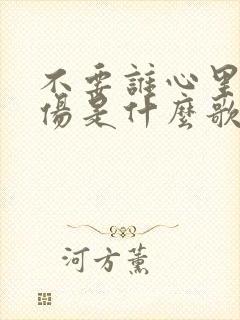 不要誰心里
傷是什麼歌
河方薰